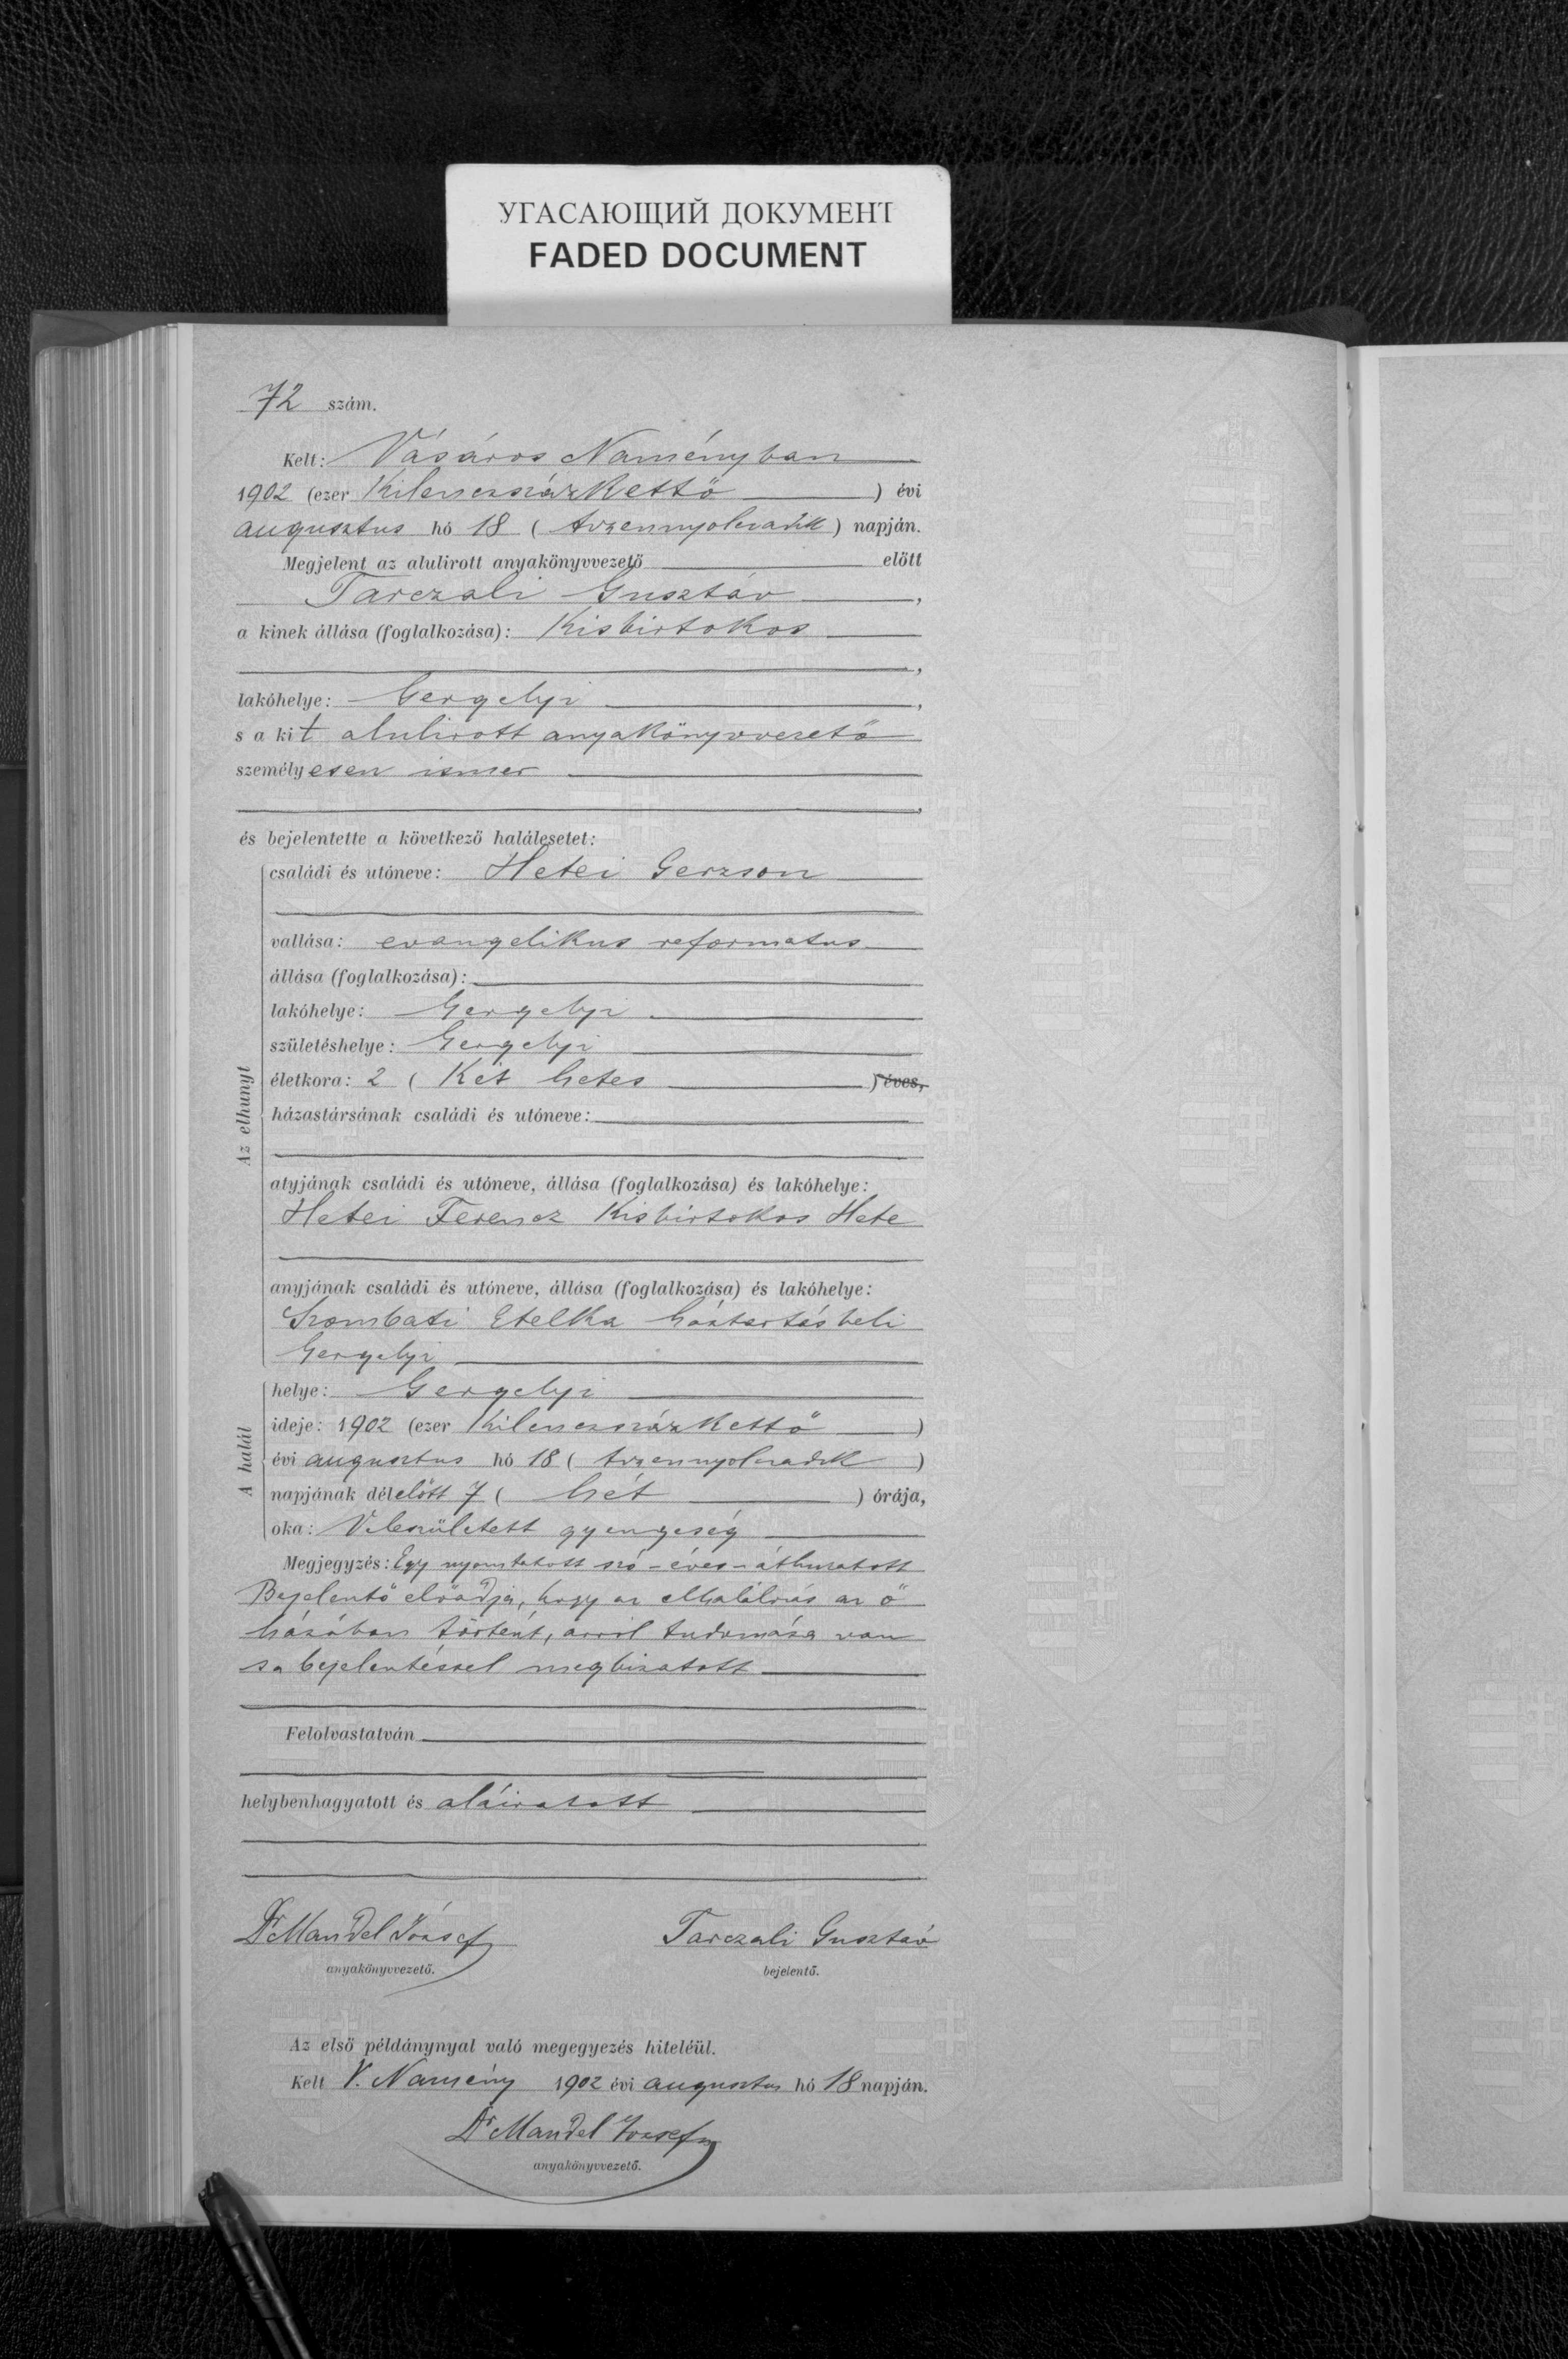 УГАСАЮЩИЙ ДОКУМЕНТ
FADED DOCUMENT
72 szám.
Kelt: Vásáros Naményban
1902 (ezer Kilenczszázkettő ) évi
augusztus hó 18 ( tizennyolczadik ) napján.
Megjelent az alulirott anyakönyvvezető előtt
Tarczali Gusztáv ,
a kinek állása (foglalkozása): Kisbirtokos
,
lakóhelye: Gergelyi ,
s a kit alulirott anyakönyvvezető
személyesen ismer
,
és bejelentette a következő halálesetet:
Az elhunyt
családi és utóneve: Hetei Gerzson
vallása: evangelikus reformatus
állása (foglalkozása):
lakóhelye: Gergelyi
születéshelye: Gergelyi
életkora: 2 ( Két hetes ) éves,
házastársának családi és utóneve:
atyjának családi és utóneve, állása (foglalkozása) és lakóhelye:
Hetei Ferencz Kisbirtokos Hete
anyjának családi és utóneve, állása (foglalkozása) és lakóhelye:
Szombati Etelka háztartásbeli
Gergelyi
A halál
helye: Gergelyi
ideje: 1902 (ezer Kilenczszázkettő )
évi augusztus hó 18 ( tizennyolczadik )
napjának délelőtt 7 ( hét ) órája,
oka: Veleszületett gyengeség
Megjegyzés: Egy nyomtatott szó - éves - áthuzatott
Bejelentő előadja, hogy az elhalálozás az ő
házában történt, arról tudomása van
s a bejelentéssel megbizatott
Felolvastatván
helybenhagyatott és aláiratott
Dr Mandel József
Tarczali Gusztáv
anyakönyvvezető.
bejelentő.
Az első példánynyal való megegyezés hiteléül.
Kelt V. Namény 1902 évi augusztus hó 18 napján.
Dr Mandel József
anyakönyvvezető.